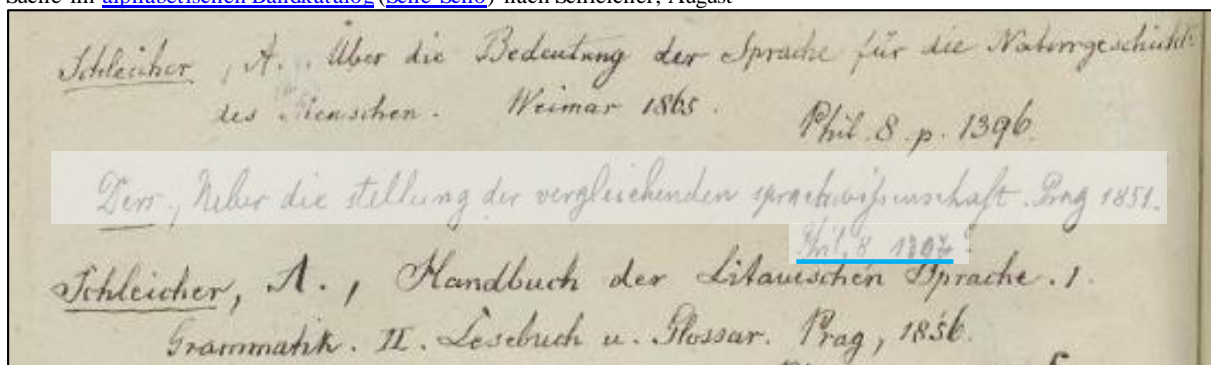 Suche im alphabetischen Bandkatalog (Seile-Seno) nach Schleicher, August
Schleicher, A. Über die Bedeutung der Sprache für die Naturgeschicht
des Menschen. Weimar 1865.
Phil. 8. p. 1396.
Ders., Ueber die stellung der vergleichenden sprachwißenschaft. Prag 1851.
Phil. 8 1397
Schleicher, A., Handbuch der Litauischen Sprache. I.
Grammatik. II. Lesebuch u. Glossar. Prag, 1856.